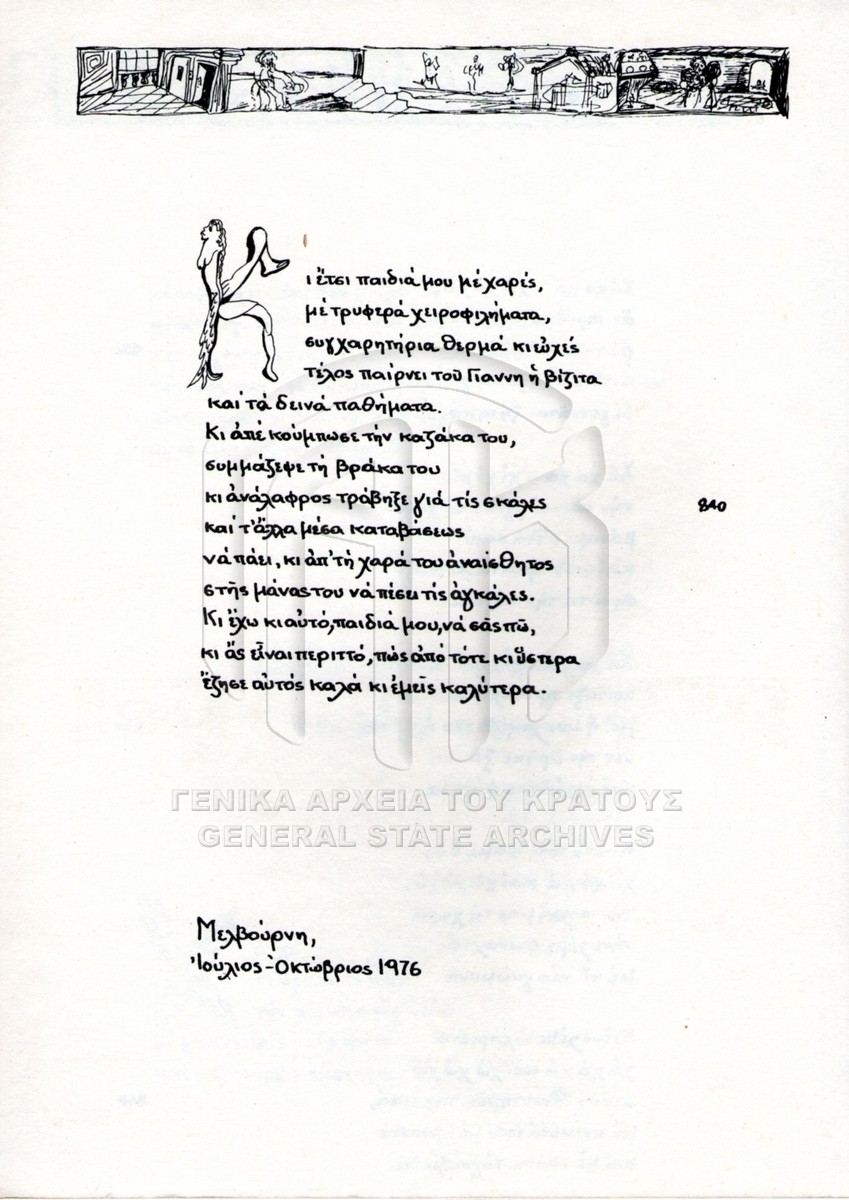 Κι ἔτσι παιδιά μου μέ χαρές,
μέ τρυφερά χειροφιλήματα,
συγχαρητήρια θερμά κι εὐχές
τέλος παίρνει τοῦ Γιαννη ἡ βίζιτα
καί τά δεινά παθήματα.
Κι ἀπέ κούμπωσε τήν καζάκα του,
συμμάζεψε τή βράκα του
κι ἀνάλαφρος τράβηξε γιά τίς σκάλες
840
καί τ' ἄλλα μέσα καταβάσεως
νά πάει, κι ἀπ' τή χαρά του ἀναίσθητος
στῆς μάνας του νά πέσει τίς ἀγκάλες.
Κι ἔχω κι αὐτό, παιδιά μου, νά σᾶς πῶ,
κι ἄς εἶναι περιττό, πώς ἀπό τότε κι ὕστερα
ἔζησε αὐτός καλά κι ἐμεῖς καλύτερα.
ΓΕΝΙΚΑ ΑΡΧΕΙΑ ΤΟΥ ΚΡΑΤΟΥΣ
GENERAL STATE ARCHIVES
Μελβούρνη,
Ἰούλιος - Ὀκτώβριος 1976